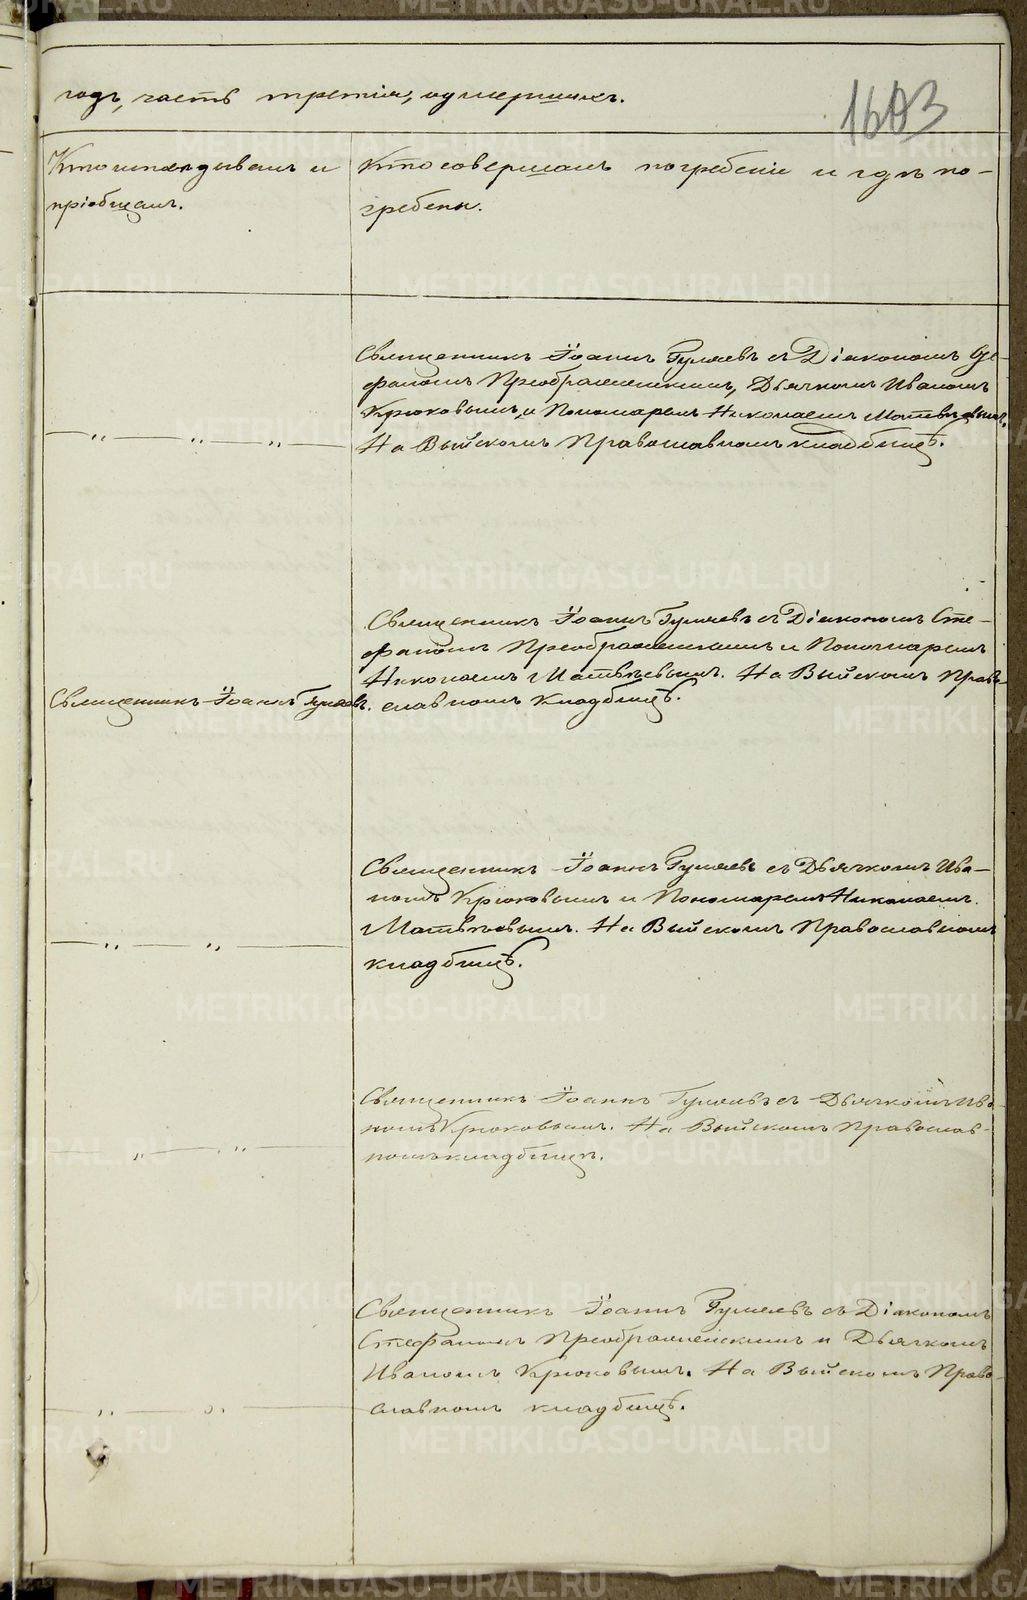 годъ, часть третія, о умершихъ.
1603
Кто исповѣдывалъ и
пріобщалъ.
Кто совершалъ погребеніе и гдѣ по-
гребены.
Священникъ Іоаннъ Гуляевъ съ Діакономъ Сте-
фаномъ Преображенскимъ, Дьячкомъ Иваномъ
Крюковымъ и Пономаремъ Николаемъ Матвѣевымъ.
На Выйскомъ Православномъ кладбищѣ.
Священникъ Іоаннъ Гуляевъ съ Діакономъ Сте-
фаномъ Преображенскимъ и Пономаремъ
Николаемъ Матвѣевымъ. На Выйскомъ Право-
Священникъ Іоаннъ Гуляевъ.
славномъ кладбищѣ.
Священникъ Іоаннъ Гуляевъ съ Дьячкомъ Ива-
номъ Крюковымъ и Пономаремъ Николаемъ
Матвѣевымъ. На Выйскомъ Православномъ
кладбищѣ.
Священникъ Іоаннъ Гуляевъ съ Дьячкомъ Ива-
номъ Крюковымъ. На Выйскомъ Православ-
номъ кладбищѣ.
Священникъ Іоаннъ Гуляевъ съ Діакономъ
Стефаномъ Преображенскимъ и Дьячкомъ
Иваномъ Крюковымъ. На Выйскомъ Право-
славномъ кладбищѣ.
METRIKI.GASO-URAL.RU